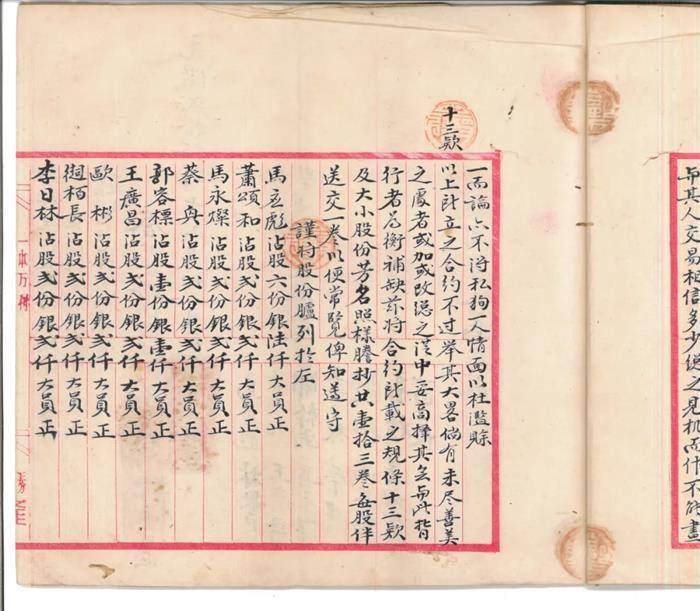 其人交易相信多少總之見机而什不能畫
十三欵
一而論亦不得私狥一人情面以杜濫賒
以上計立之合約不过举其大畧倘有未尽善美
之處者或加或改總之從中妥高擇其善而此皆
行者為衡補缺茲將合約計載之規條十三欵
及大小股份芳名照樣謄抄共壹拾三卷每股伴
送交一卷以便常覧俾知遵守
謹将股份臚列於左
馬立彪沾股六份銀陸仟大員正
蕭頌和沾股弍份銀弍仟大員正
馬永燦沾股弍份銀弍仟大員正
蔡 沾股弍份銀弍仟大員正
郭容標沾股壹份銀壹仟大員正
王廣昌沾股弍份銀弍仟大員正
歐彬沾股弍份銀弍仟大員正
栢長沾股弍份銀弍仟大員正
李日林沾股弍份銀弍仟大員正
一本万